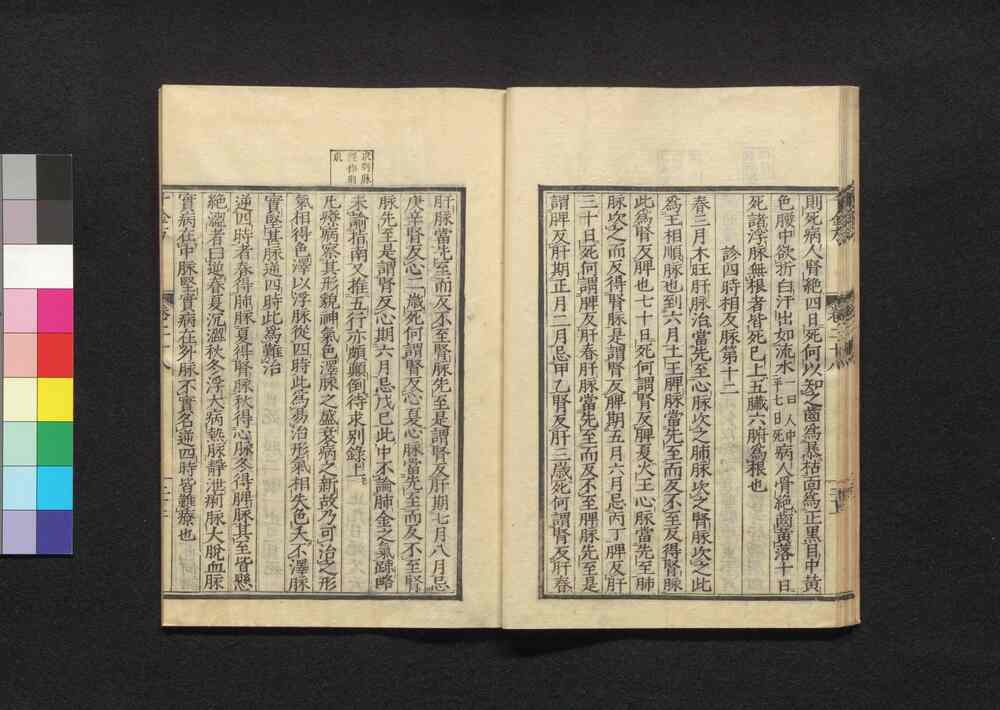 則死病人腎絶四日死何以知之齒爲暴枯面爲正黒目中黄
色腰中欲折白汗出如流水一曰人中平七日死病人骨絶齒黄落十日
死諸浮脉無根者皆死已上五臓六腑爲根也
診四時相反脉第十二
春三月木旺肝脉治當先至心脉次之肺脉次之腎脉次之此
爲王相順脉也到六月土王脾脉當先至而反不至反得腎脉
此爲腎反脾也七十日死何謂腎反脾夏火王心脉當先至肺
脉次之而反得腎脉是謂腎反脾期五月六月忌丙丁脾反肝
三十日死何謂脾反肝春肝脉當先至而反不至脾脉先至是
謂脾反肝期正月二月忌甲乙腎反肝三歳死何謂腎反肝春
肝脉當先至而反不至腎脉先至是謂腎反肝期七月八月忌
庚辛腎反心二歳死何謂腎反心夏心脉當先至而反不至腎
脉先至是謂腎反心期六月忌戊己此中不論肺金之氣疎略
未論指南又推五行亦頗顛倒待求別録上
凡療病察其形貌神氣色澤脉之盛衰病之新故乃可治之形
氣相得色澤以浮脉從四時此爲易治形氣相失色夭不澤脉
實堅甚脉逆四時此爲難治
逆四時者春得肺脉夏得腎脉秋得心脉冬得脾脉其至皆懸
絶澀者曰逆春夏沉澀秋冬浮大病熱脉靜泄痢脉大脱血脉
實病在中脉堅實病在外脉不實名逆四時皆難療也